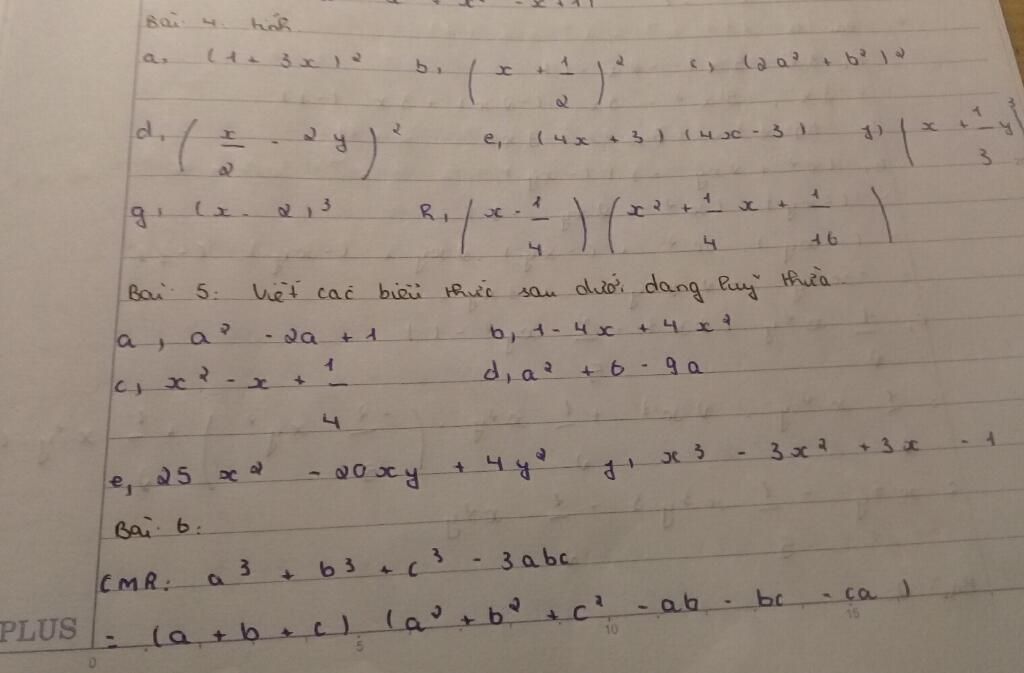 Bài 4. Tính
a, (1 + 3x)² b, (x + 1/2)² c, (2a² + b²)²
d, (x/2 - 2y)² e, (4x + 3)(4x - 3) f, (x + 1/3 y)³
g, (x - 2)³ h, (x - 1/4)(x² + 1/4 x + 1/16)
Bài 5: Viết các biểu thức sau dưới dạng luỹ thừa
a, a² - 2a + 1 b, 1 - 4x + 4x²
c, x² - x + 1/4 d, a² + 6 - 9a
e, 25x² - 20xy + 4y² f, x³ - 3x² + 3x - 1
Bài 6:
CMR: a³ + b³ + c³ - 3abc
= (a + b + c) (a² + b² + c² - ab - bc - ca)
PLUS
0 5 10 15